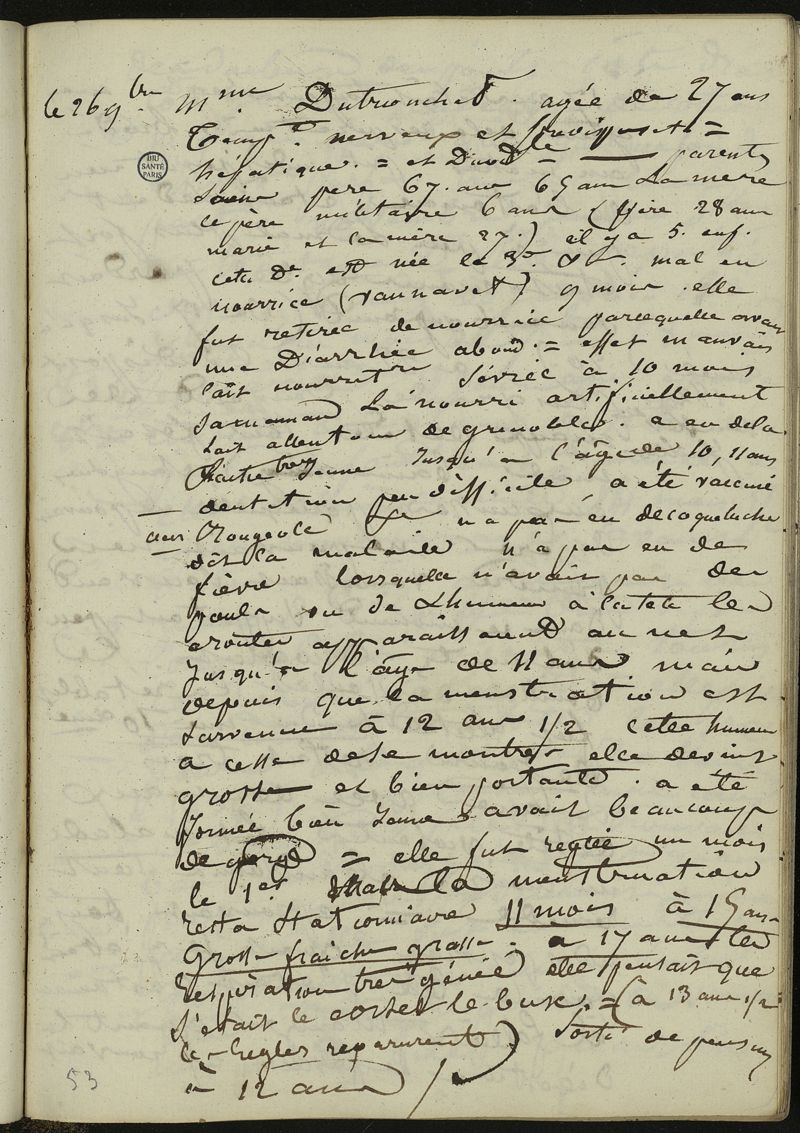 le 26 9bre Mme Dutronchet. agée de 27 ans
Tempt nerveux et
hépatique. = et = parents
sains pere 67. ans 65 ans La mere
le père militaire 6 ans (frère 28 ans
marié et la mère 27.) il y a 5. enf.
cette De est née la 3e mal en
nourrice ( ) 9 mois. elle
fut retirée de nourrice parcequelle avait
une Diarrhée abond. = effet mauvais
lait nourrice Sévrée à 10 mois
sa maman La nourri artificiellement
Lait de grenobles. a eu de la
Jeune Jusqu'a l'âge de 10, 11 ans
dentition peu difficile a été vacciné
Rougeole n'a pas eu de coqueluche
dit la malade n'a pas eu de
fièvre lorsquelle n'avait pas des
poux ou de L'humeur à la tete les
croutes apparaissent au nez
Jusqu'a l'âge de 11 ans mais
depuis que la menstruation est
survenue à 12 ans 1/2 cette humeur
a cessé de se montrer elle devint
grosse et bien portante. a été
formée bien Jeune avait beaucoup
de gorge = elle fut reglée un mois
le 1er la menstruation
resta Stationnaire 11 mois à 15 ans
Grosse fraiche grasse. à 17 ans la
respiration tres gênée elle pensait que
s'etait le corset le busc. = (a 13 ans 1/2
les regles reparurent) Sortie de pension
à 12 ans
53
BIU
SANTÉ
PARIS